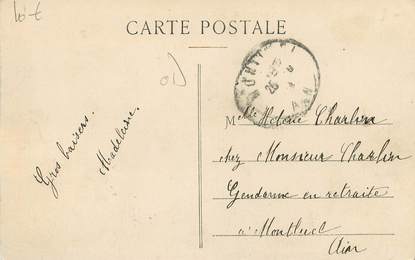 CARTE POSTALE
Gros baisers.
Madeleine.
Mlle Hélène Charlin
chez Monsieur Charlin
Gendarme en retraite
à Montluel
Ain